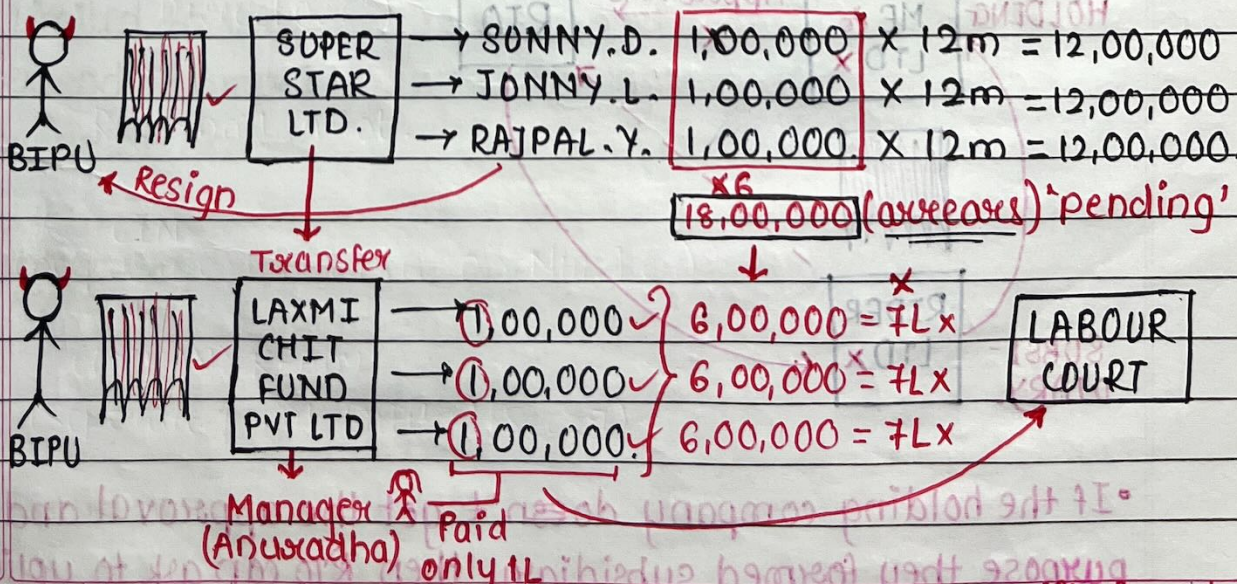 SUPER STAR LTD.
→ SUNNY.D. 1,00,000 × 12m = 12,00,000
→ JONNY.L. 1,00,000 × 12m = 12,00,000
→ RAJPAL.Y. 1,00,000 × 12m = 12,00,000
BIPU
Resign
×6
18,00,000 (arrears) 'pending'
Transfer
LAXMI CHIT FUND PVT LTD
→ 1,00,000 ✓ 6,00,000 = 7L ×
→ 1,00,000 ✓ 6,00,000 = 7L ×
→ 1,00,000. ✓ 6,00,000 = 7L ×
LABOUR COURT
BIPU
Manager
(Anuradha)
Paid
only 1L